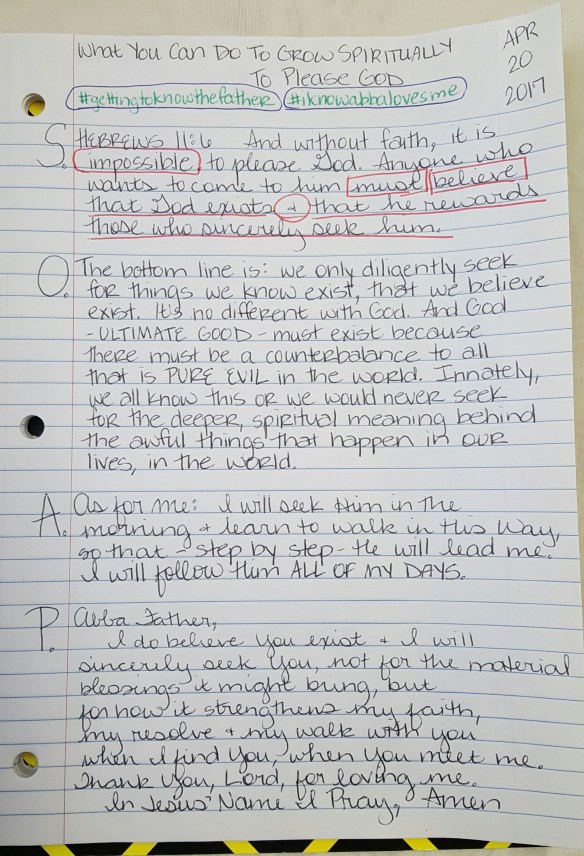 What You Can Do To Grow Spiritually
To Please God
APR
20
2017
#gettingtoknowthefather #iknowabbalovesme
S. HEBREWS 11:6 And without faith, it is
impossible to please God. Anyone who
wants to come to him must believe
that God exists + that he rewards
those who sincerely seek him.
O. The bottom line is: we only diligently seek
for things we know exist, that we believe
exist. It's no different with God. And God
- ULTIMATE GOOD - must exist because
there must be a counterbalance to all
that is PURE EVIL in the world. Innately,
we all know this or we would never seek
for the deeper, spiritual meaning behind
the awful things that happen in our
lives, in the world.
A. As for me: I will seek Him in the
morning + learn to walk in this Way,
so that - step by step - He will lead me.
I will follow Him ALL OF MY DAYS.
P. Abba Father,
I do believe You exist + I will
sincerely seek You, not for the material
blessings it might bring, but
for how it strengthens my faith,
my resolve + my walk with you
when I find You, when You meet me.
Thank You, Lord, for loving me.
In Jesus' Name I Pray, Amen